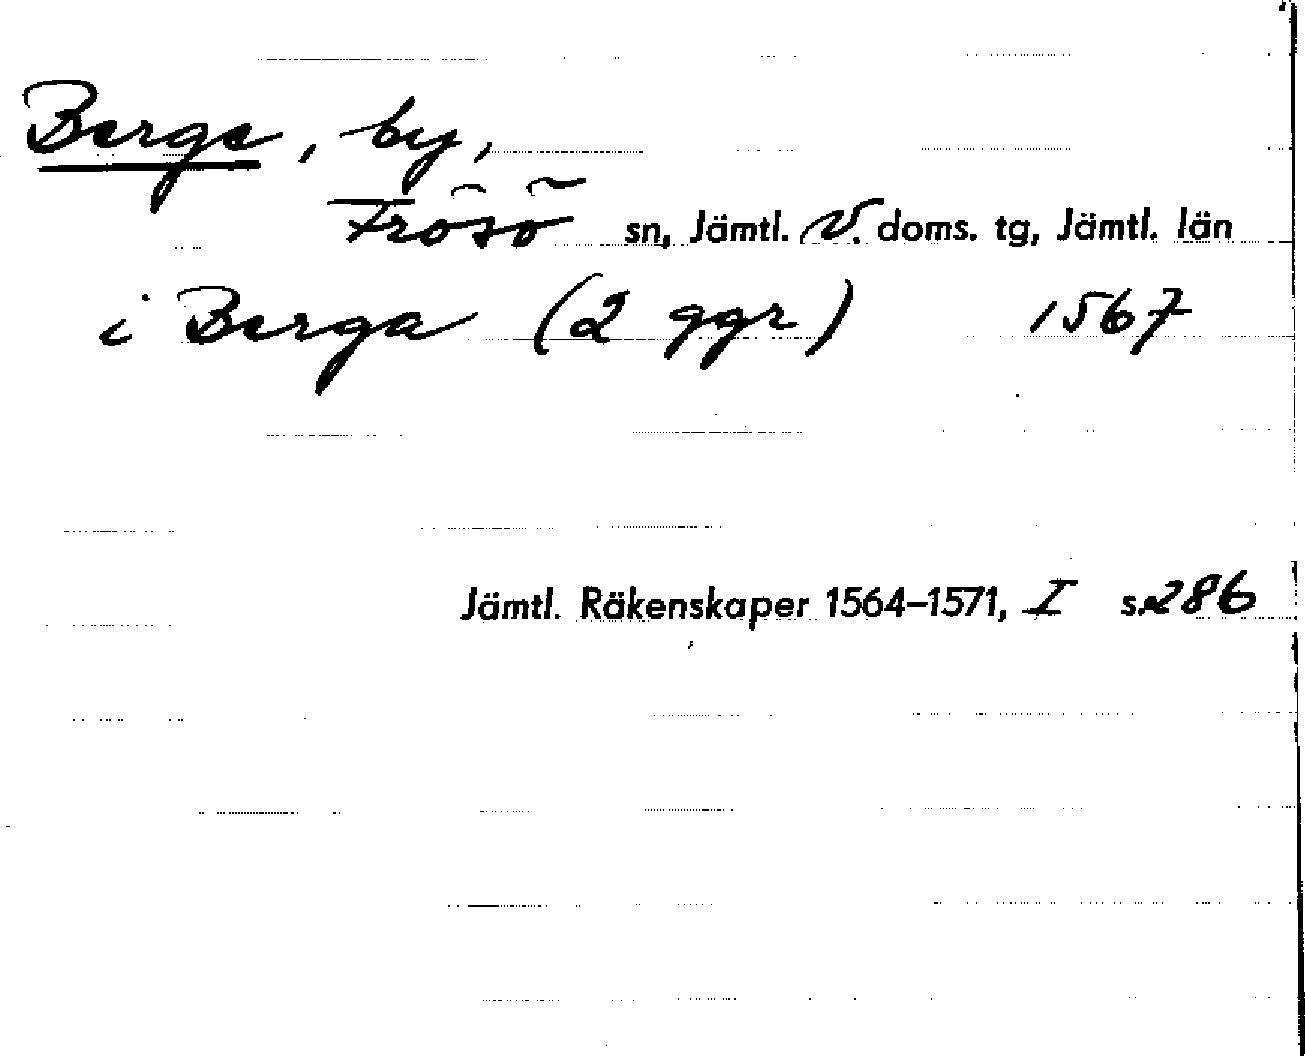 Berge, by,
Frösö sn, Jämtl. V. doms. tg, Jämtl. län
i Berga (2 ggr) 1567
Jämtl. Räkenskaper 1564–1571, I s. 286